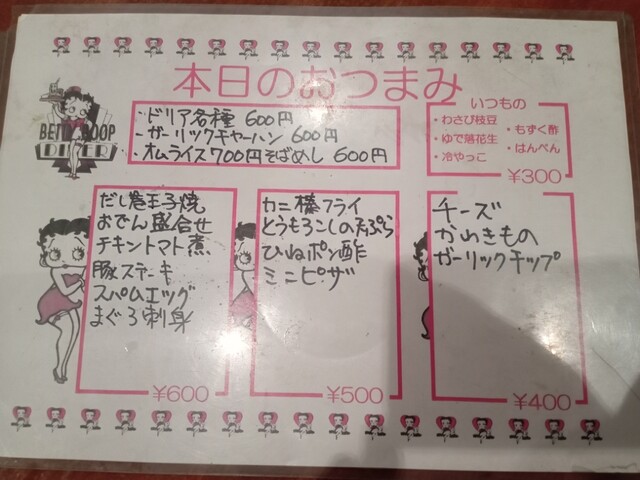 本日のおつまみ
BETTY BOOP
DINER
・ドリア各種 600円
・ガーリックチャーハン 600円
・オムライス700円そばめし 600円
いつもの
・わさび枝豆
・もずく酢
・ゆで落花生
・はんぺん
・冷やっこ
¥300
だし巻玉子焼
おでん盛合せ
チキントマト煮
豚ステーキ
スパムエッグ
まぐろ刺身
¥600
カニ棒フライ
とうもろこしの天ぷら
ひねポン酢
ミニピザ
¥500
チーズ
かわきもの
ガーリックチップ
¥400